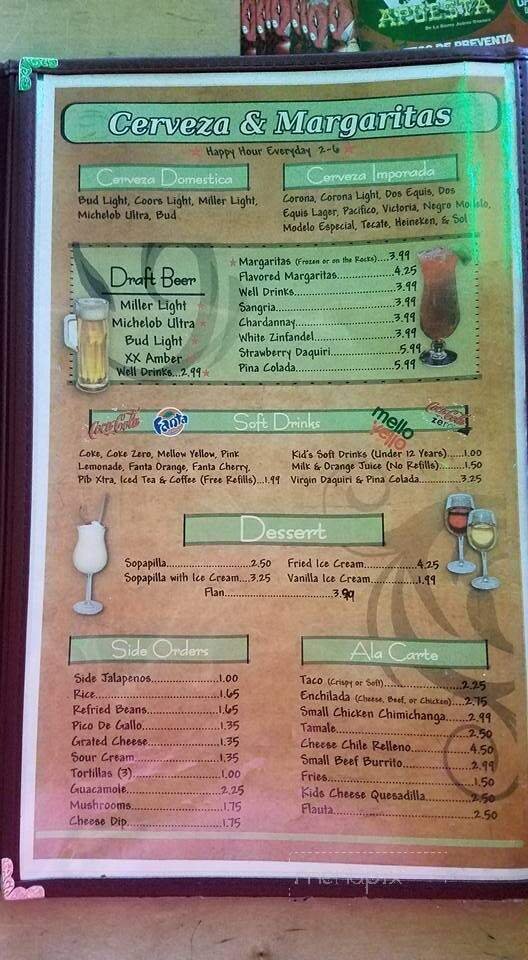 APUESTA
DE PREVENTA
Cerveza & Margaritas
Happy Hour Everyday 2-6
Cerveza Domestica
Bud Light, Coors Light, Miller Light,
Michelob Ultra, Bud
Cerveza Imporada
Corona, Corona Light, Dos Equis, Dos
Equis Lager, Pacifico, Victoria, Negro Modelo,
Modelo Especial, Tecate, Heineken, & Sol
Draft Beer
Miller Light
Michelob Ultra
Bud Light
XX Amber
Well Drinks...2.99
Margaritas (Frozen or on the Rocks)...3.99
Flavored Margaritas...4.25
Well Drinks...3.99
Sangria...3.99
Chardannay...3.99
White Zinfandel...3.99
Strawberry Daquiri...5.99
Pina Colada...5.99
Coca-Cola Fanta Soft Drinks mello yello Coca-Cola zero
Coke, Coke Zero, Mellow Yellow, Pink
Lemonade, Fanta Orange, Fanta Cherry,
Pib Xtra, Iced Tea & Coffee (Free Refills)...1.99
Kid's Soft Drinks (Under 12 Years)...1.00
Milk & Orange Juice (No Refills)...1.50
Virgin Daquiri & Pina Colada...3.25
Dessert
Sopapilla...2.50
Sopapilla with Ice Cream...3.25
Fried Ice Cream...4.25
Vanilla Ice Cream...1.99
Flan...3.99
Side Orders
Side Jalapenos...1.00
Rice...1.65
Refried Beans...1.65
Pico De Gallo...1.35
Grated Cheese...1.35
Sour Cream...1.35
Tortillas (3)...1.00
Guacamole...2.25
Mushrooms...1.75
Cheese Dip...1.75
Ala Carte
Taco (Crispy or Soft)...2.25
Enchilada (Cheese, Beef, or Chicken)...2.75
Small Chicken Chimichanga...2.99
Tamale...2.50
Cheese Chile Relleno...4.50
Small Beef Burrito...2.99
Fries...1.50
Kids Cheese Quesadilla...2.50
Flauta...2.50
menupix